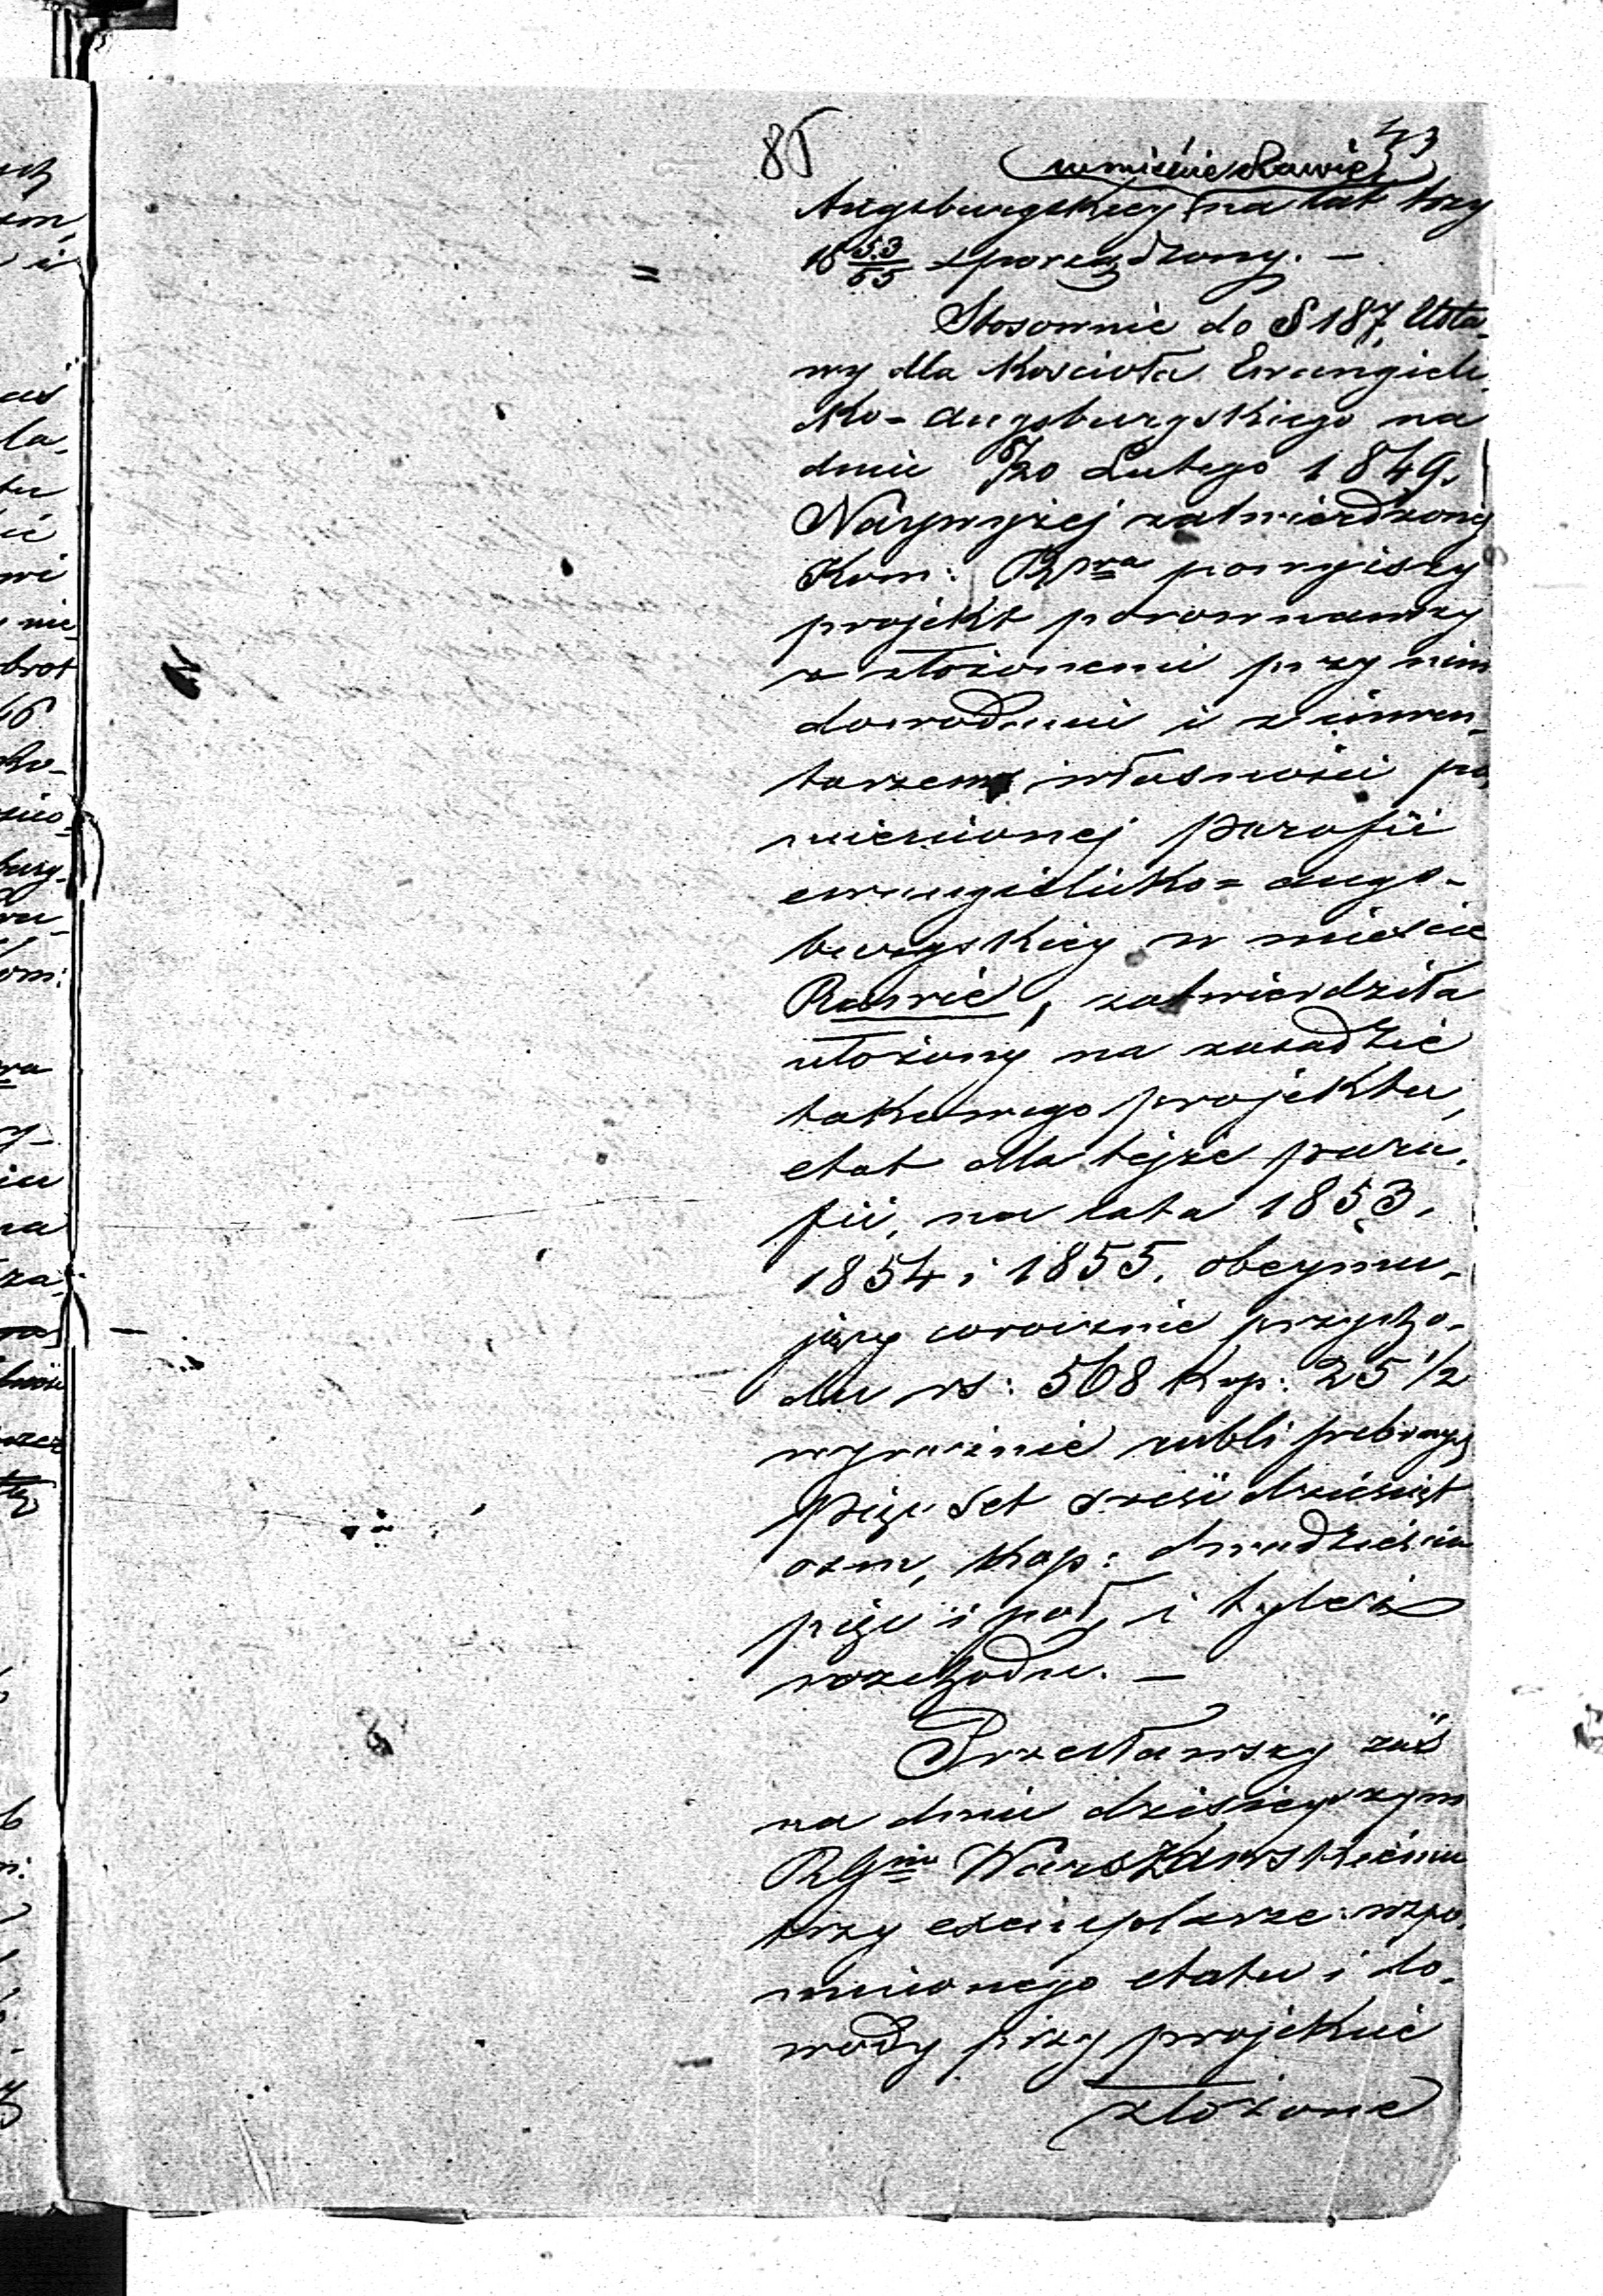 86
43
w mieście Rawie
Augsburgskiey na lat trzy
18 53/55 sporządzony. —
Stosownie do § 187, Usta-
wy dla Kościoła Ewangieli-
cko-Augsburgskiego na
dniu 8/20 Lutego 1849.
Naywyżej zatwierdzonej
Kom: Rwa powyższy
projekt porównawszy
z złożonemi przy nim
dowodami i z inwen-
tarzem własności po-
mienionej parafii
ewangielicko=augs-
burgskiey w mieście
Rawie, zatwierdziła
ułożony na zasadzie
takowego projektu,
etat dla tejże para-
fii, na lata 1853.
1854 i 1855. obeymu-
jący corocznie przycho-
du rs: 568 kop: 25 1/2
wyraźnie rubli srebrnych
pięć set sześćdziesiąt
ośm, kop: dwadzieścia
pięć i pół, i tyleż
rozchodu. —
Przesławszy zaś
na dniu dzisieyszym
RGmu Warszawskiemu
trzy exemplarze wspo-
mnionego etatu i do-
wody przy projekcie
złożone